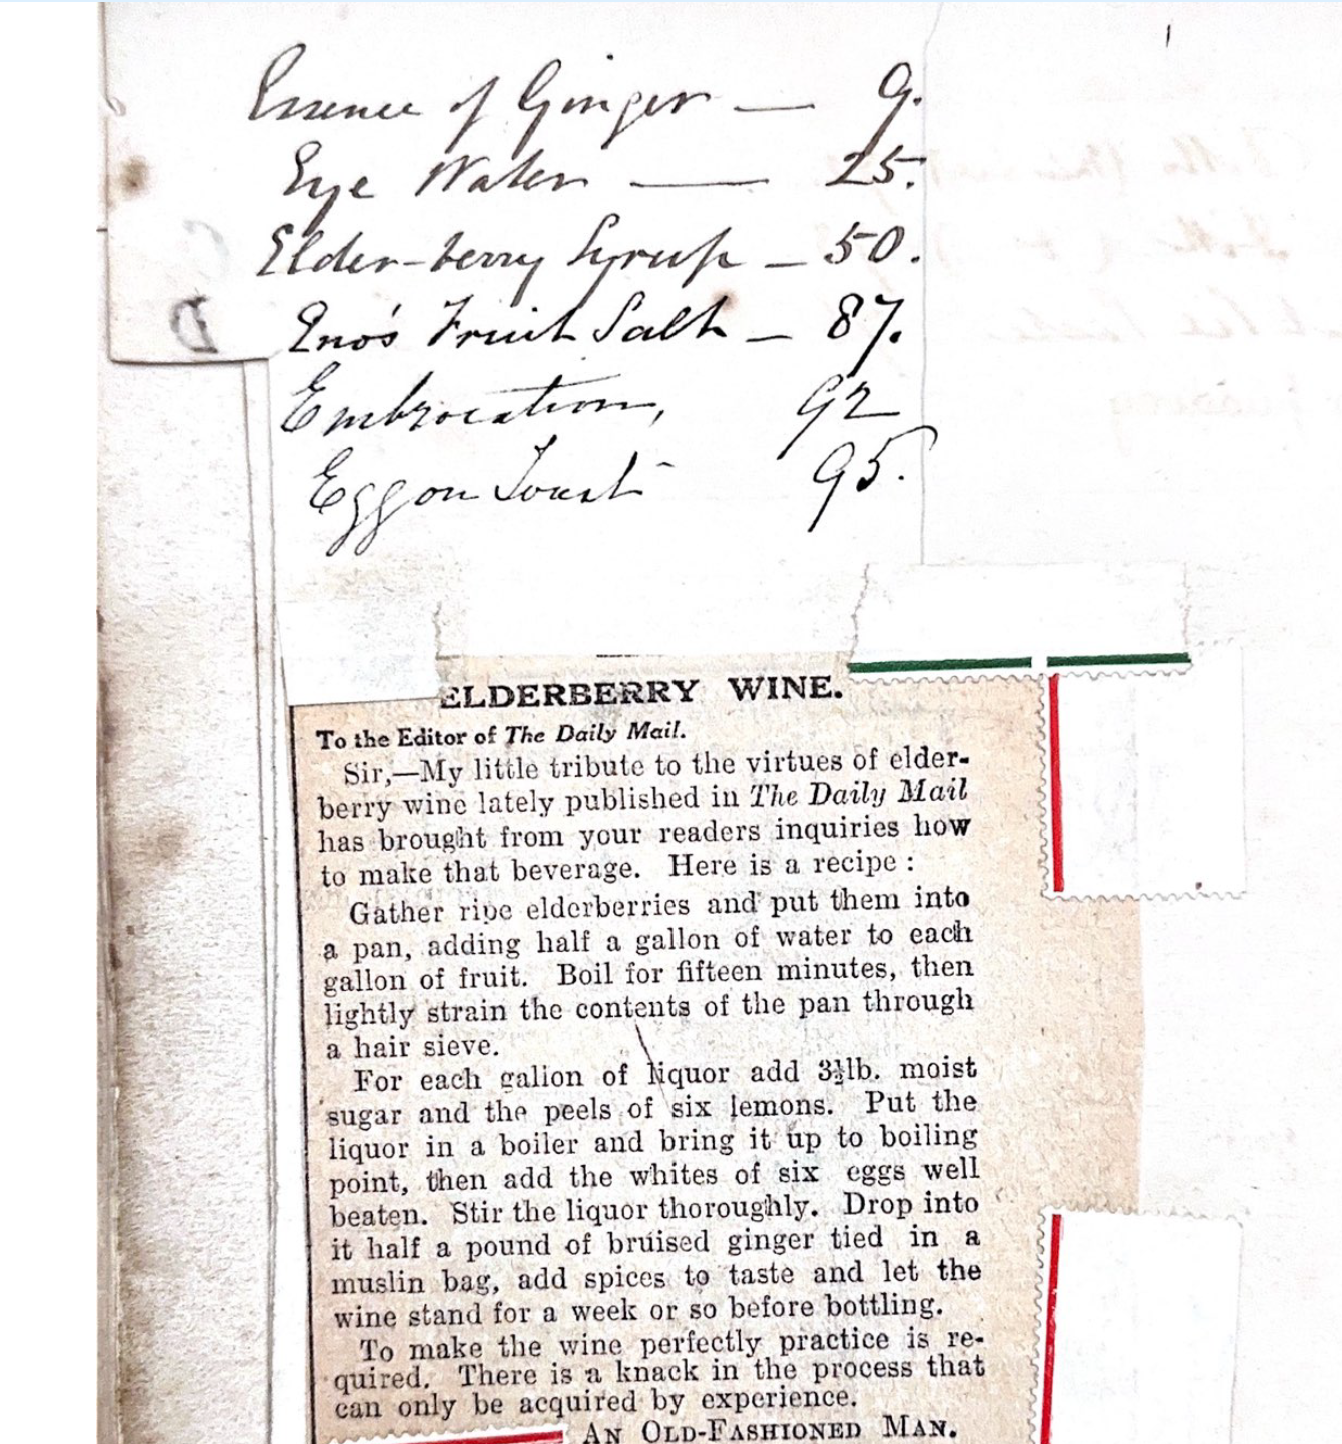 Essence of Ginger — 9.
Eye Water — 25.
Elder-berry Syrup — 50.
Eno's Fruit Salt — 87.
Embrocation, 92
Egg on Toast 95.
D
ELDERBERRY WINE.
To the Editor of The Daily Mail.
Sir,—My little tribute to the virtues of elder-
berry wine lately published in The Daily Mail
has brought from your readers inquiries how
to make that beverage. Here is a recipe :
Gather ripe elderberries and put them into
a pan, adding half a gallon of water to each
gallon of fruit. Boil for fifteen minutes, then
lightly strain the contents of the pan through
a hair sieve.
For each gallon of liquor add 3½lb. moist
sugar and the peels of six lemons. Put the
liquor in a boiler and bring it up to boiling
point, then add the whites of six eggs well
beaten. Stir the liquor thoroughly. Drop into
it half a pound of bruised ginger tied in a
muslin bag, add spices to taste and let the
wine stand for a week or so before bottling.
To make the wine perfectly practice is re-
quired. There is a knack in the process that
can only be acquired by experience.
AN OLD-FASHIONED MAN.